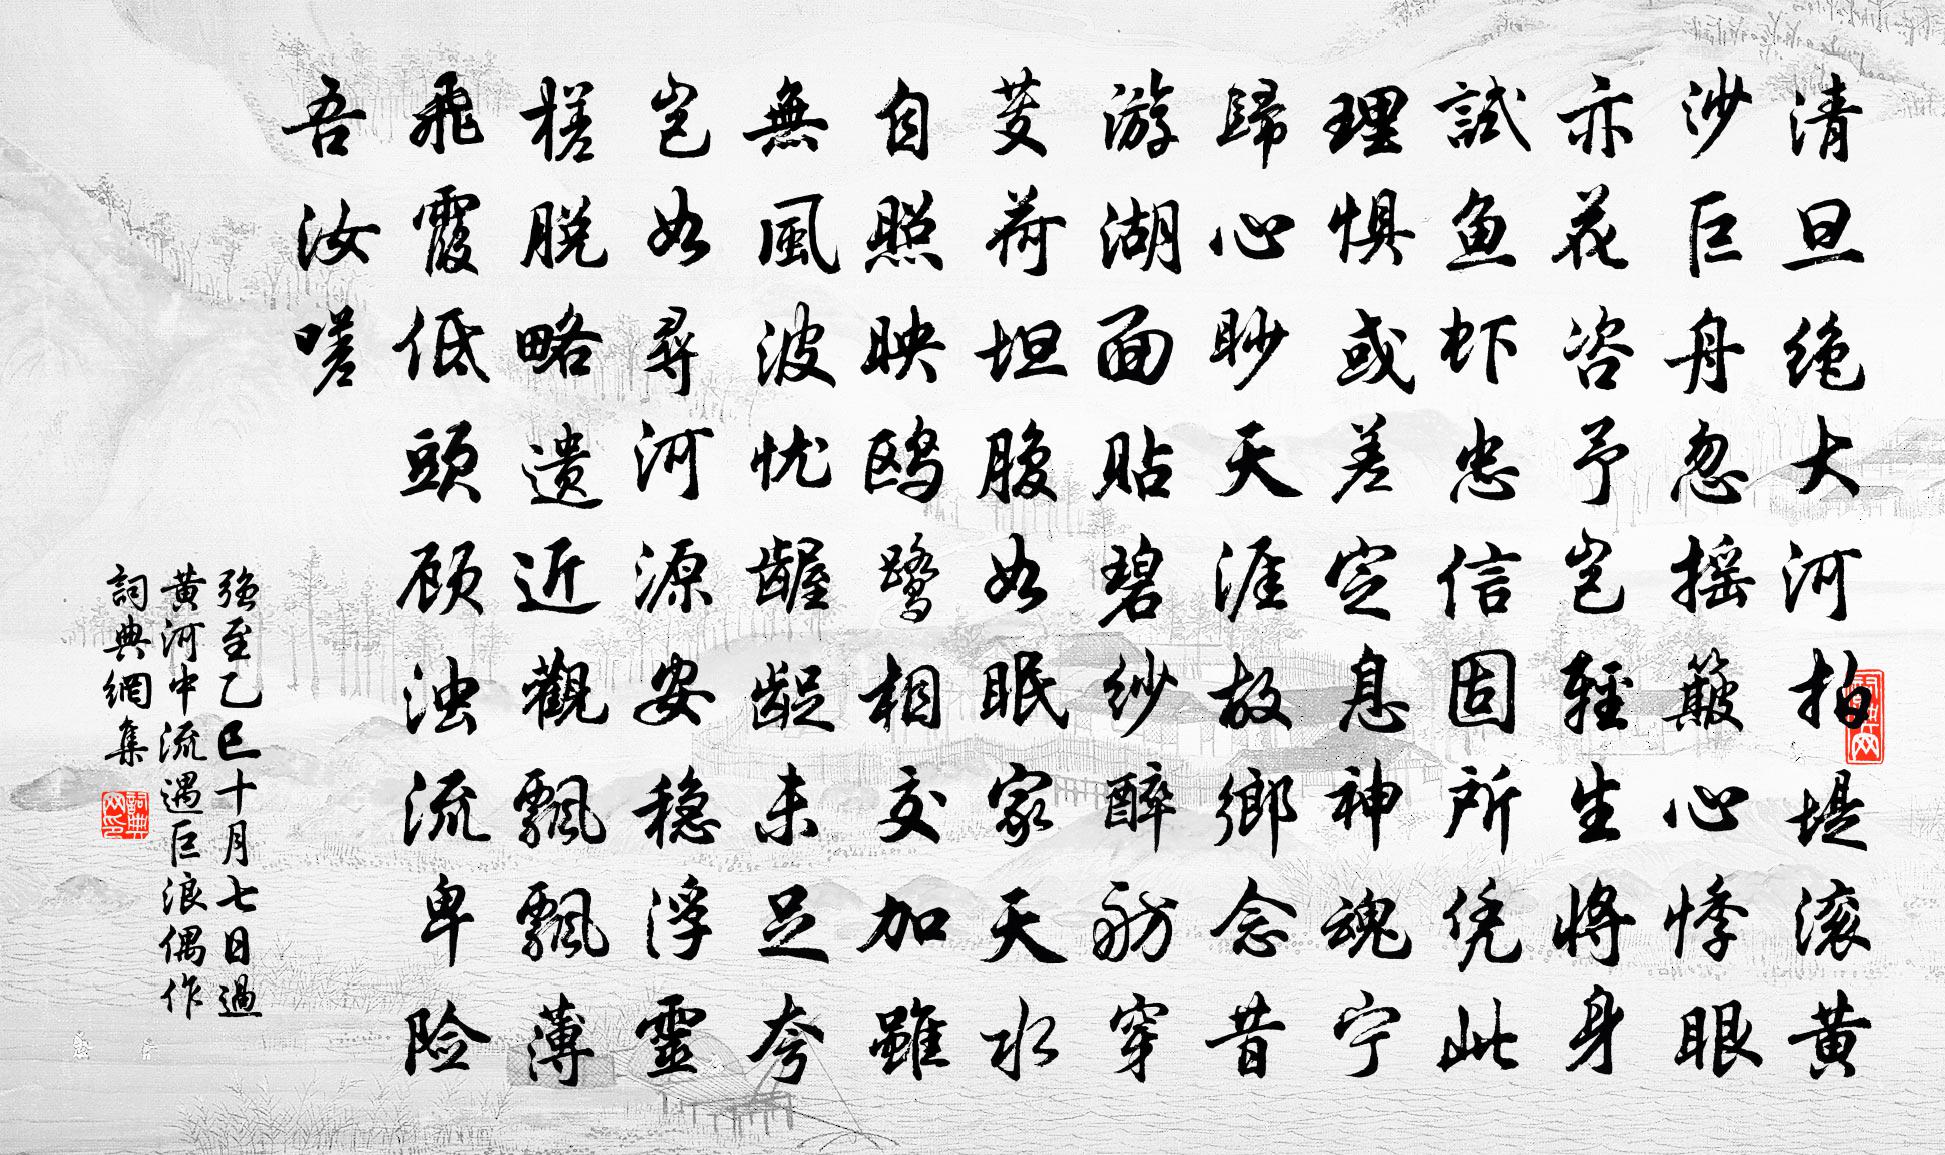 清旦绝大河拍堤滚黄
沙巨舟忽摇簸心悸眼
亦花咨予岂轻生将身
試鱼虾忠信固所凭此
理惧或差定息神魂宁
歸心眇天涯故鄉念昔
游湖面贴碧纱醉舫穿
芰荷坦腹如眠家天水
自照映鸥鹭相交加雖
無風波忧龌龊未足夸
岂如尋河源安稳浮靈
槎脱略遗近觀飘飘薄
飛霞低頭顾浊流卑险
吾汝嗟
强至乙巳十月七日過
黄河中流遇巨浪偶作
詞典網集